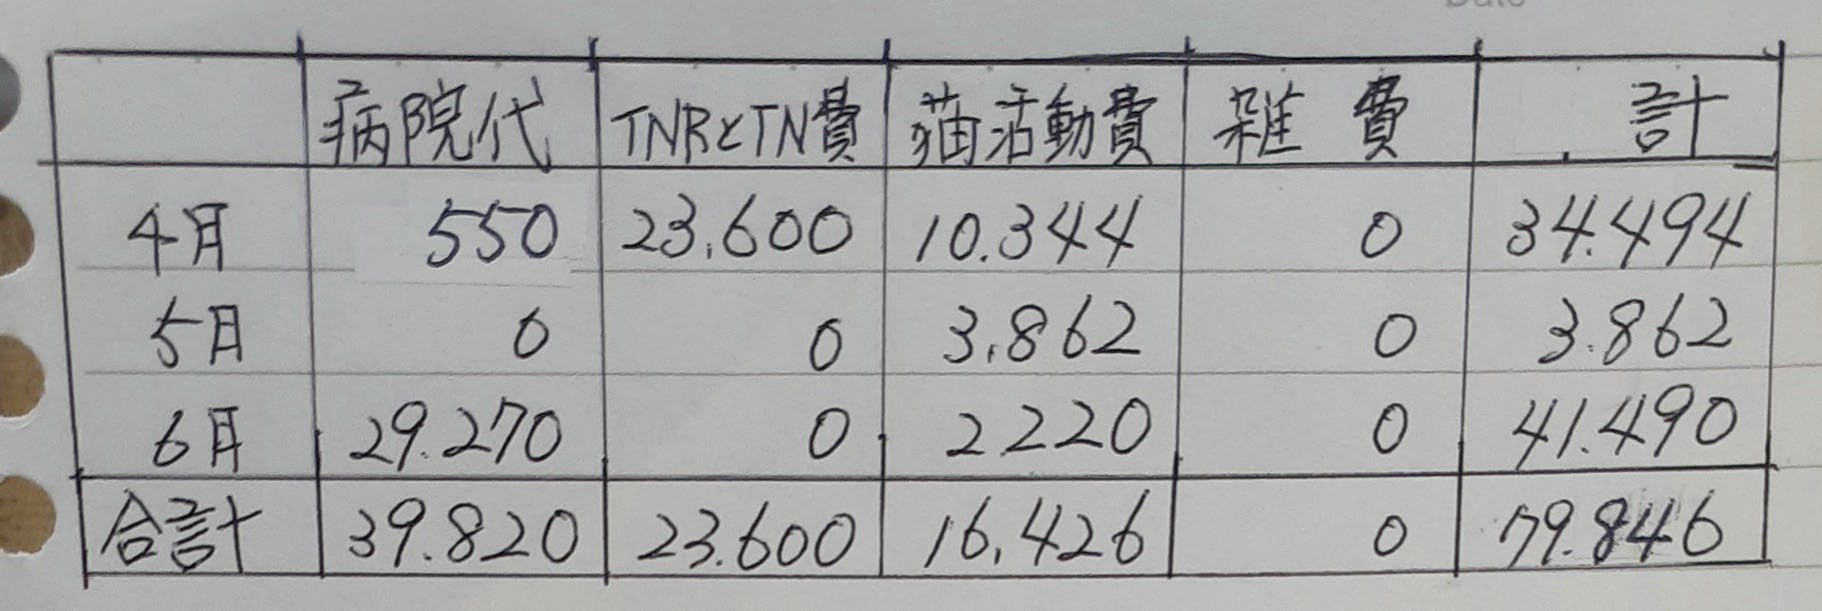 病院代 TNRとTN費 猫活動費 雑費 計
4月 550 23,600 10.344 0 34.494
5月 0 0 3,862 0 3.862
6月 29.270 0 2220 0 41.490
合計 39.820 23.600 16,426 0 79.846